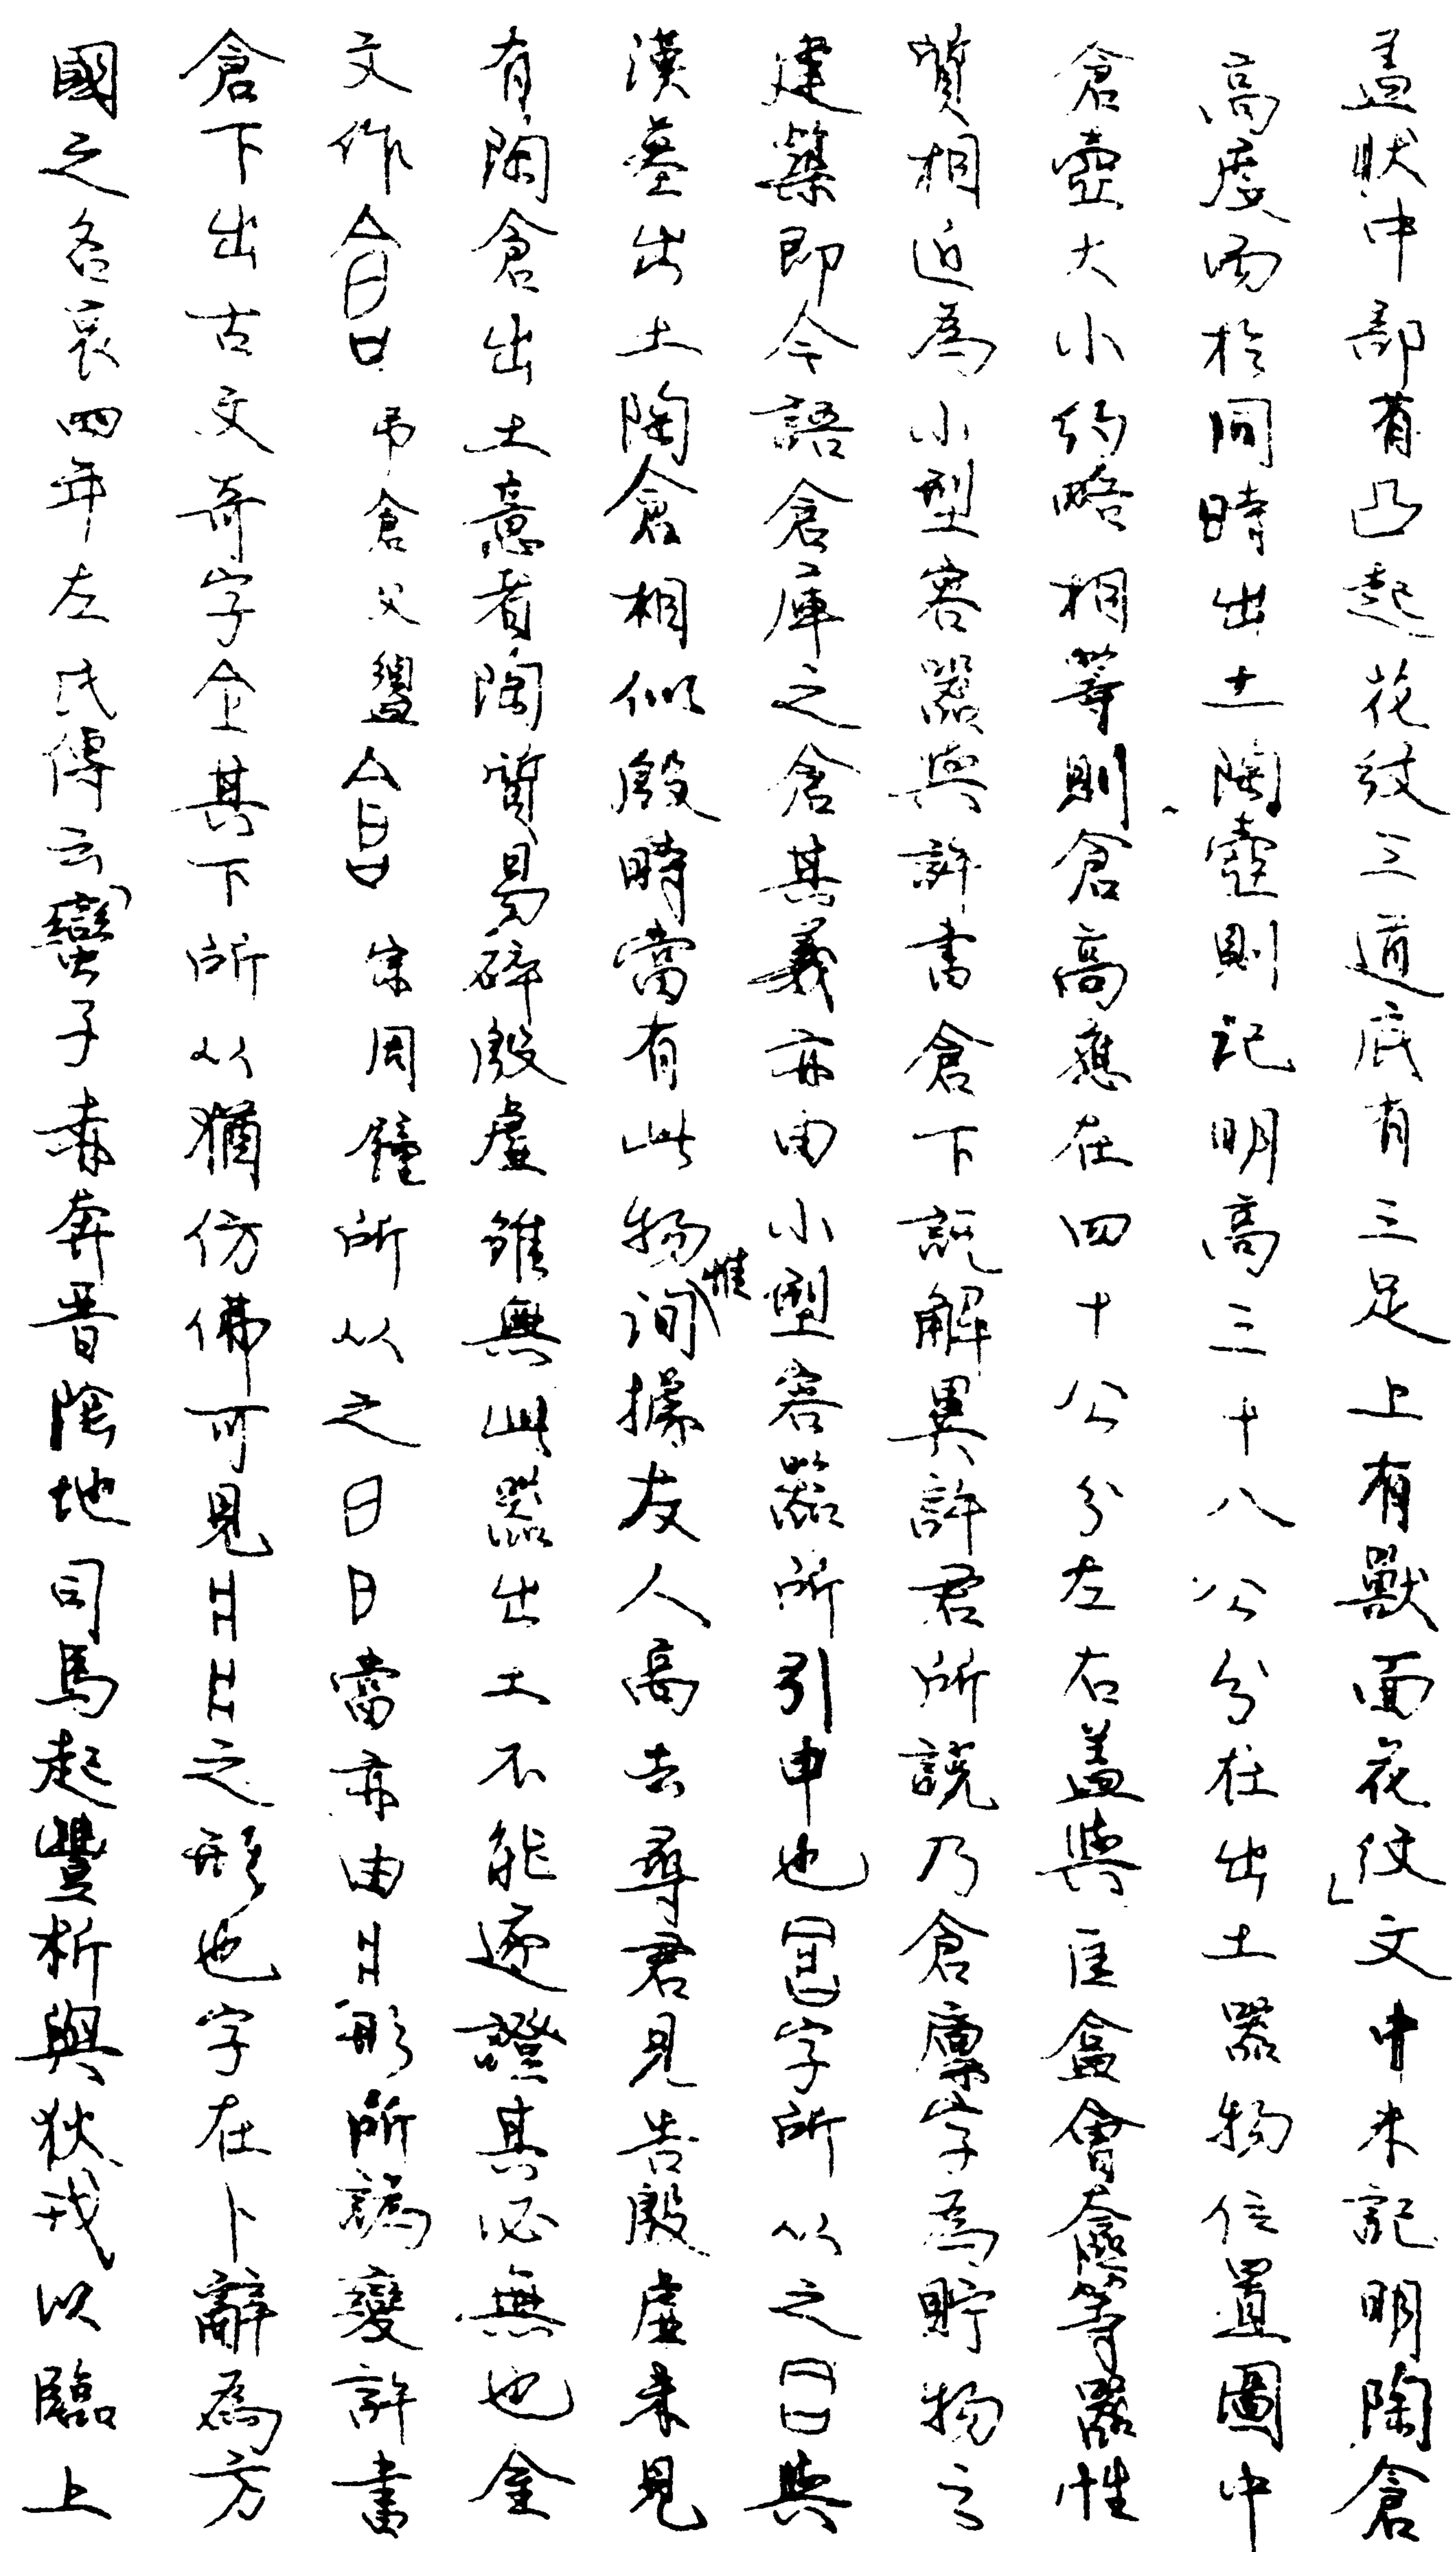 蓋狀中部有凸起花紋三道底有三足上有獸面花紋」文中未記明陶倉
高度而於同時出土陶壺則記明高三十八公分在出土器物位置圖中
倉壺大小約略相等則倉高應在四十公分左右蓋與匡盒會奩等器性
質相近為小型容器與許書倉下説解異許君所説乃倉廩字為貯物之
建築即今語倉庫之倉其義亦由小型容器所引申也字所从之與
漢墓出土陶倉相似殷時當有此物惟詢據友人高去尋君見告殷虛未見
有陶倉出土意者陶質易碎殷虛雖無此器出土不能遽證其必無也金
文作弔倉父盨宗周鐘所从之日日當亦由形所譌變許書
倉下出古文奇字仺其下所从猶仿佛可見之形也字在卜辭為方
國之名哀四年左氏傳云「蠻子赤奔晉陰地司馬起豐析與狄戎以臨上